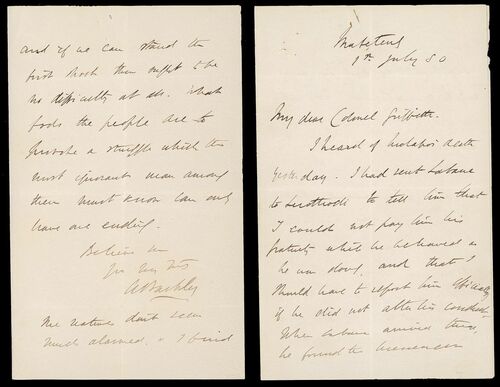 Mafeteng
1st July 80
My dear Colonel Griffith.
I heard of Molapo's death
yesterday. I had sent Sabane
to Lerothodi to tell him that
I could not pay him his
gratuity while he behaved as
he was doing, and that I
should have to report him officially
if he did not alter his conduct.
When Sabane arrived there,
he found the messenger
and if we can stand the
first shock there ought to be
no difficulty at all. What
fools the people are to
provoke a struggle which the
most ignorant man among
them must know can only
have one ending.
Believe me
Yrs very truly
A Barkly
The natives don't seem
much alarmed, & I